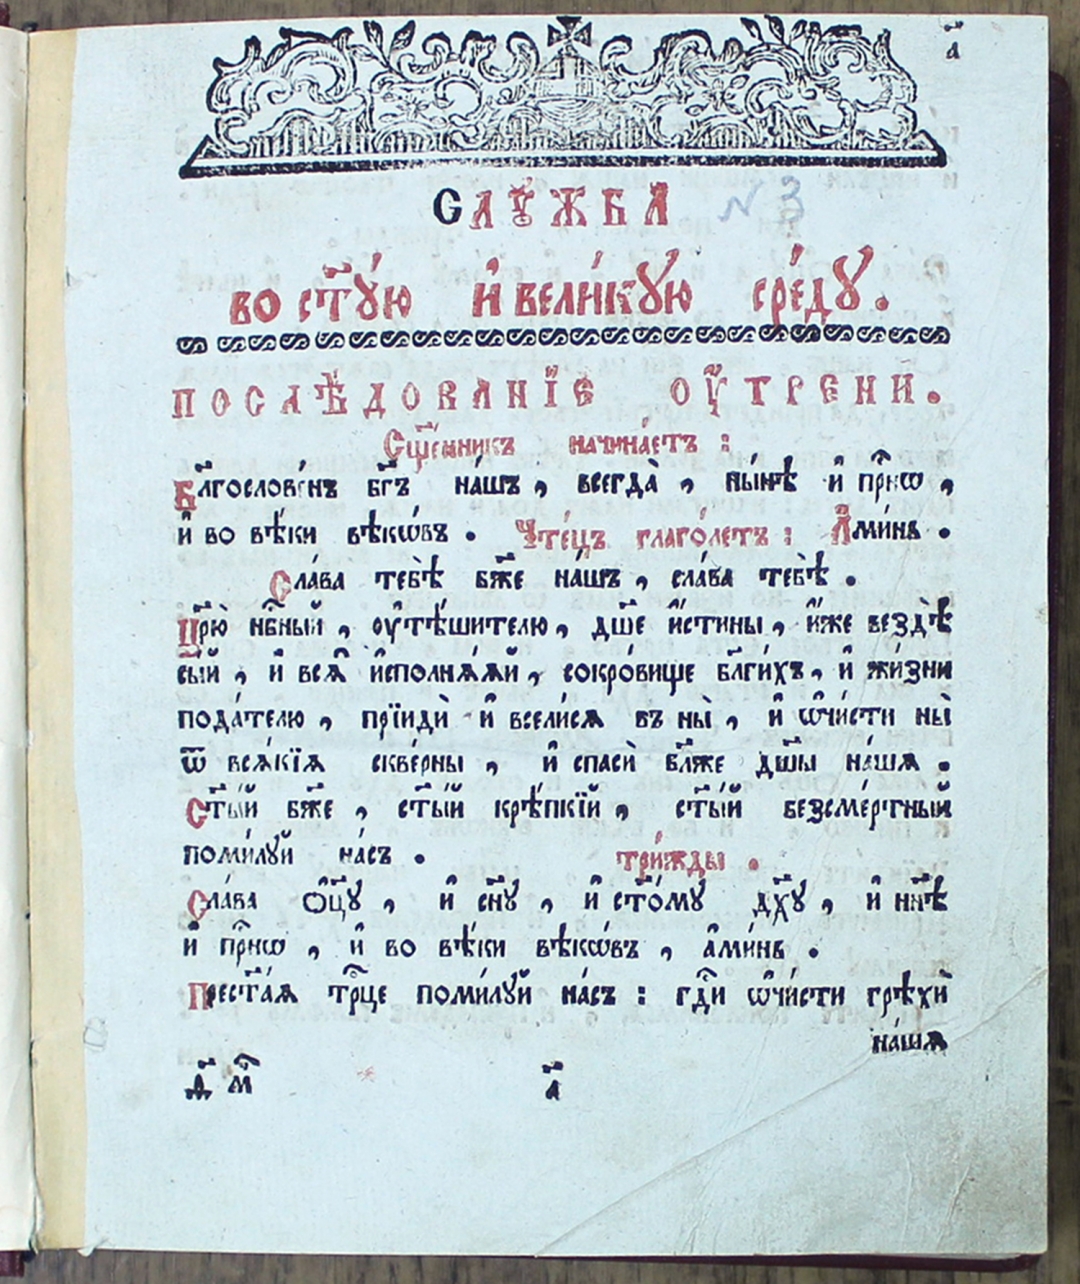 а҃
СЛꙊЖБА
N 3
во ст҃ꙋ́ю и҆ вели́кꙋю сре́дꙋ.
ПОСЛѢДОВАНЇЕ ОУ҆ТРЕНИ.
Сщ҃е́нникъ начина́етъ :
Бл҃гослове́нъ бг҃ъ на́шъ , всегда̀ , ны́нѣ и҆ при́снѡ ,
и҆ во вѣ́ки вѣкѡ́въ . Чте́цъ глаго́летъ : А҆ми́нь .
Сла́ва тебѣ̀ бж҃е на́шъ , сла́ва тебѣ̀ .
Цр҃ю̀ нбⷭ҇ный , оу҆тѣ́шителю , дш҃е и҆́стины , и҆́же вездѣ̀
сы́й , и҆ всѧ̑ и҆сполнѧ́ѧй , сокро́вище бл҃ги́хъ , и҆ жи́зни
пода́телю , прїидѝ и҆ всели́сѧ въ ны̀ , и҆ ѡ҆чи́сти ны̀
ѿ всѧ́кїѧ скве́рны , и҆ спасѝ бл҃же дш҃ы нáшѧ .
Ст҃ы́й бж҃е , ст҃ы́й крѣ́пкїй , ст҃ы́й безсме́ртный
поми́лꙋй на́съ . три́жды .
Сла́ва ѻ҆ц҃ꙋ̀ , и҆ сн҃ꙋ , и҆ ст҃о́мꙋ дх҃ꙋ , и҆ нн҃ѣ
и҆ при́снѡ , и҆ во вѣ́ки вѣкѡ́въ , а҆ми́нь .
Прест҃а́ѧ трⷪ҇це поми́лꙋй на́съ : гдⷭ҇и ѡ҆чи́сти грѣхѝ
на́шѧ
а҃